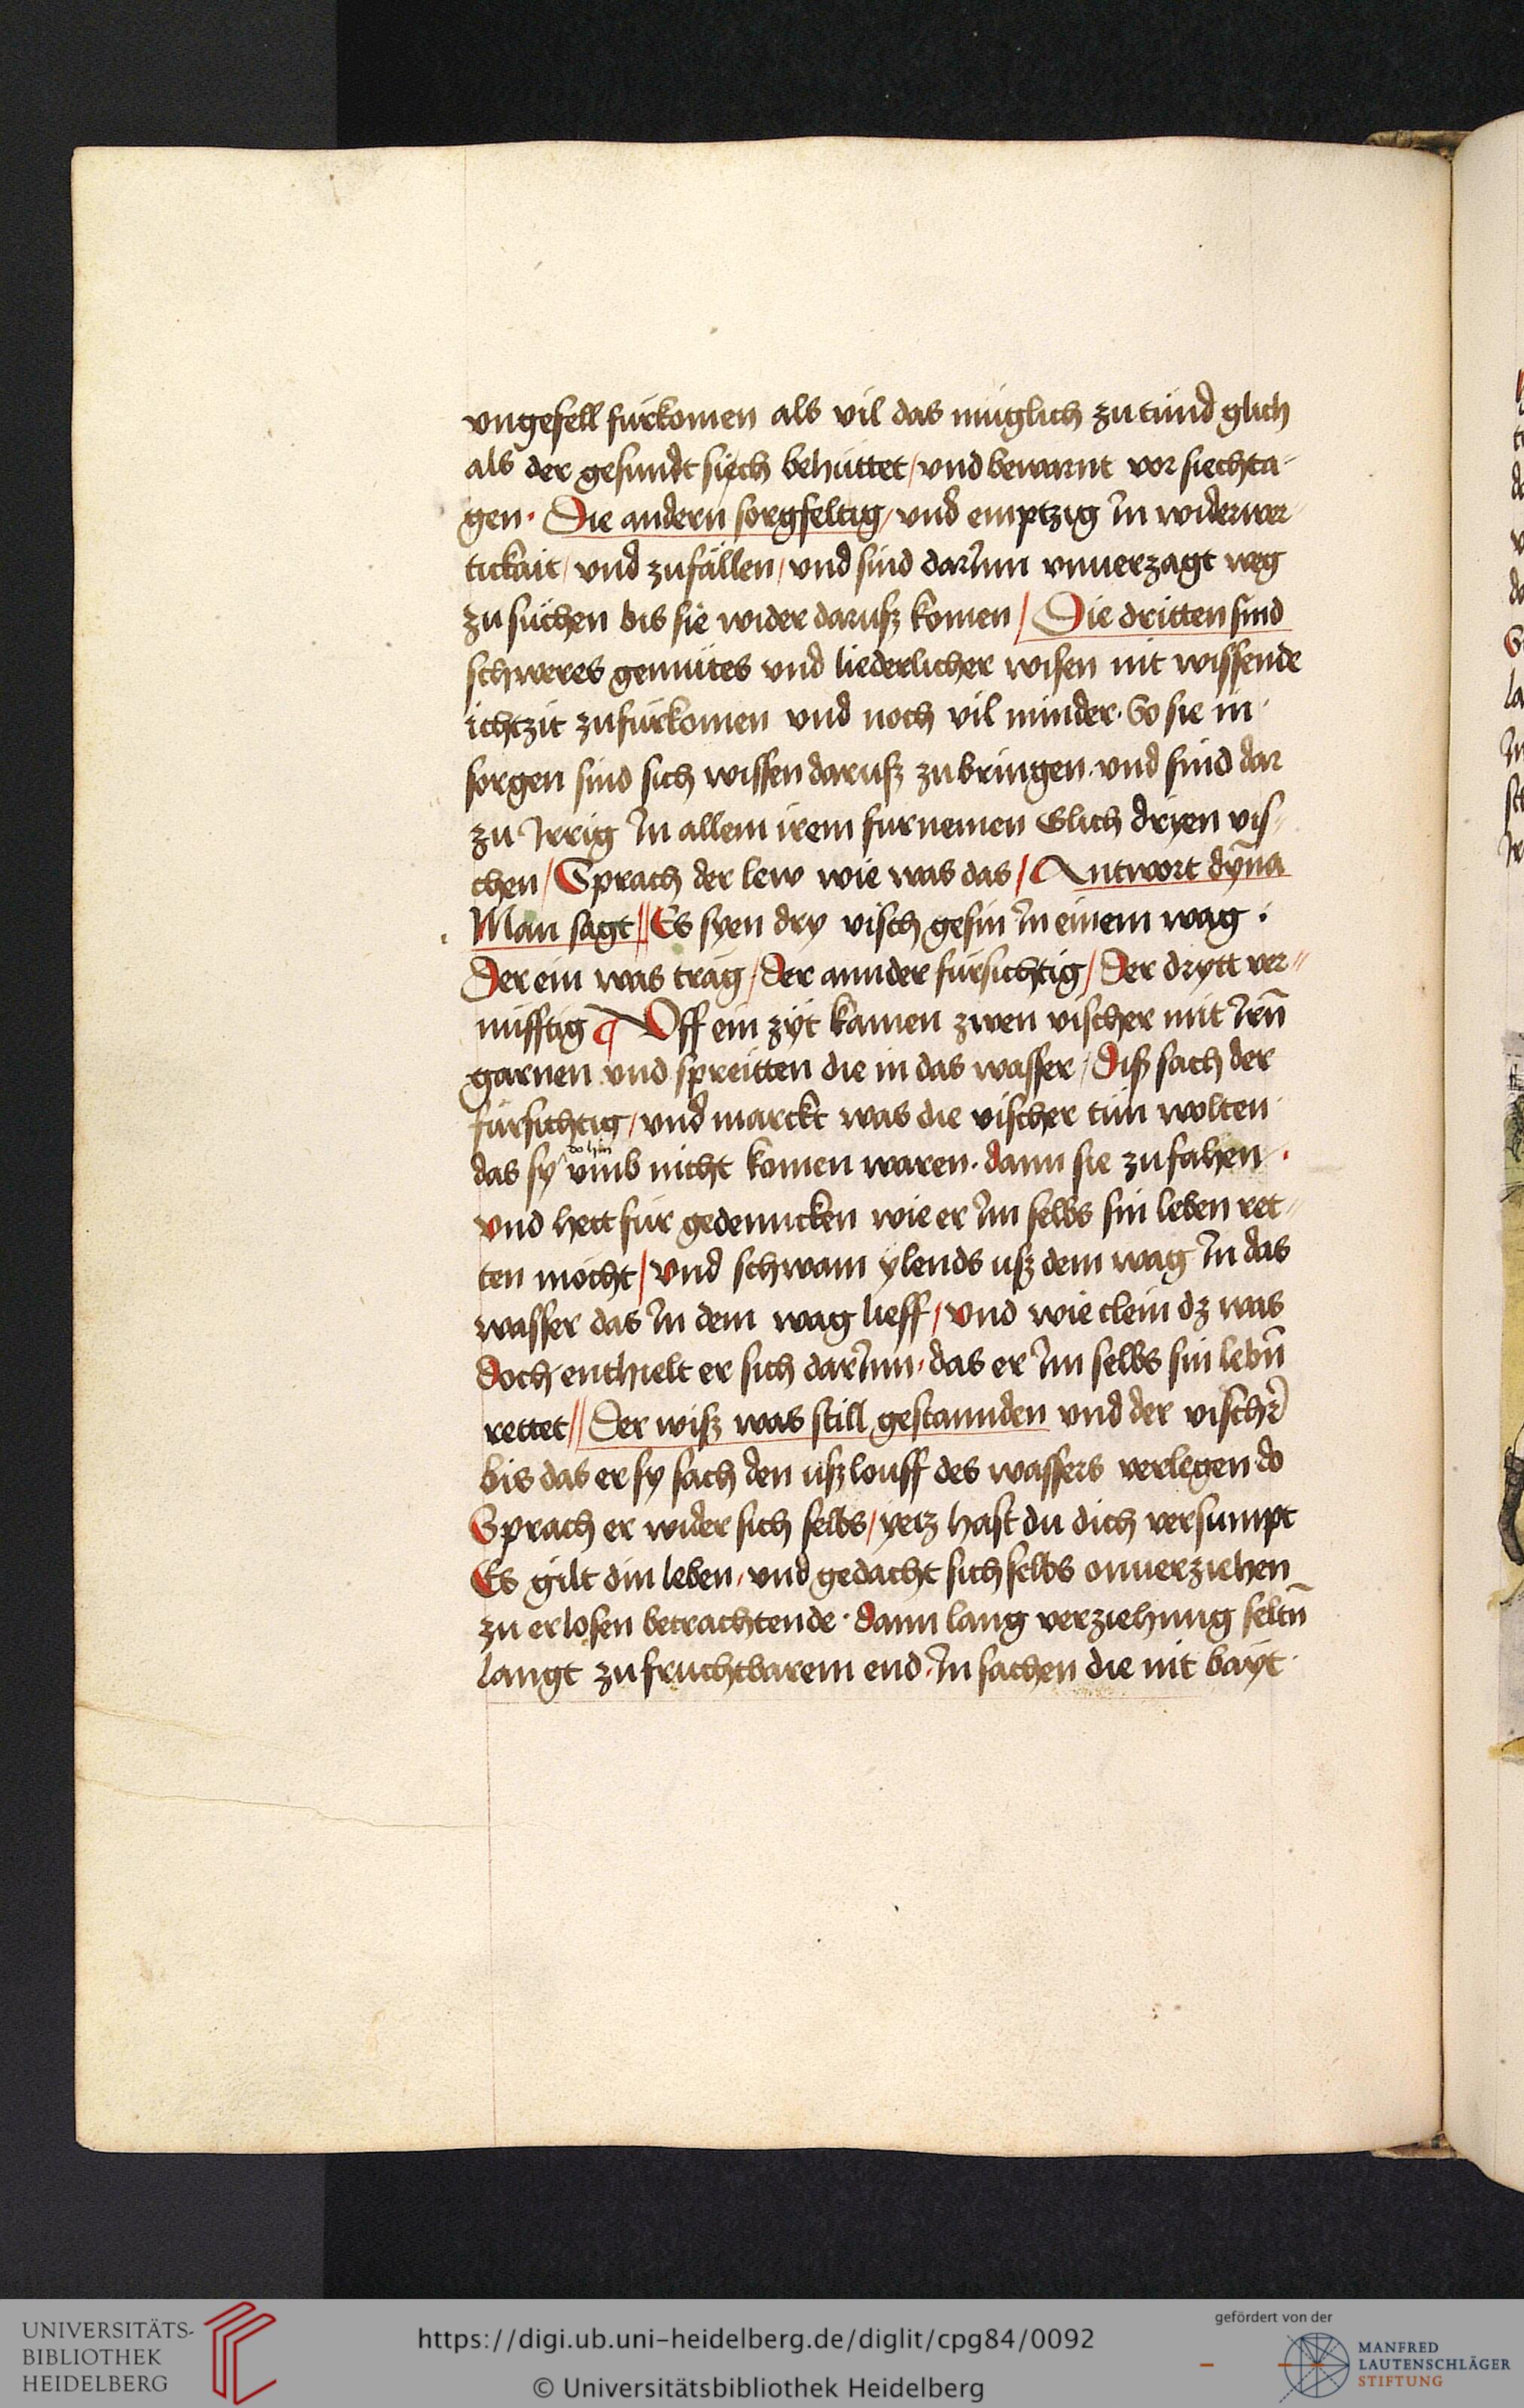 vngefell fürkomen als vil das müglich zu tünd glich
als der gesundt siech behüttet / vnd bewarnt vor siechta-
gen · Die andern sorgfeltig / vnd emptzig In widerwer-
tickait / vnd zufällen / vnd sind darInn vnuerzagt weg
zu süchen bis sie wider darusz komen / Die dritten sind
schweres gemütes vnd liederlicher wisen nit wissende
ichtzit zufürkomen vnd noch vil minder · So sie in
sorgen sind sich wissen darusz zu bringen · vnd sind dar
zu Irrig In allem irem fürnemen Glich dryen vis-
chen / Sprach der lew wie was das / Antwort dyna
Man sagt // Es syen dry visch gesin In einem wag ·
Der ein was träg / der annder fürsichtig / Der drytt ver-
nüfftig ¶ Vff ein zyt kamen zwen vischer mit Irn̄
garnen vnd spreitten die in das wasser / Diß sach der
fürsichtig / vnd marckt was die vischer tün wolten
das sy do hin vmb nicht komen waren · dann sie zufahen ·
vnd hett für gedenncken wie er Im selbs sin leben ret-
ten möcht / vnd schwam ylends usz dem wag In das
wasser das In dem wag lieff / vnd wie clein dz was
doch enthielt er sich darInn · das er Im selbs sin lebn̄
rettet // Der wisz was still gestannden vnd der visch̄r
bis das er sy sach den uszlouff des wassers verlegen do
Sprach er wider sich selbs / yetz hast du dich versumpt
Es gilt din leben / vnd gedacht sich selbs onuerziehen
zu erlosen betrachtende · dann lang verziehung seltn̄
langt zu fruchtbarem end · In sachen die nit bayt
UNIVERSITÄTS-
BIBLIOTHEK
HEIDELBERG
https://digi.ub.uni-heidelberg.de/diglit/cpg84/0092
© Universitätsbibliothek Heidelberg
gefördert von der
MANFRED
LAUTENSCHLÄGER
STIFTUNG